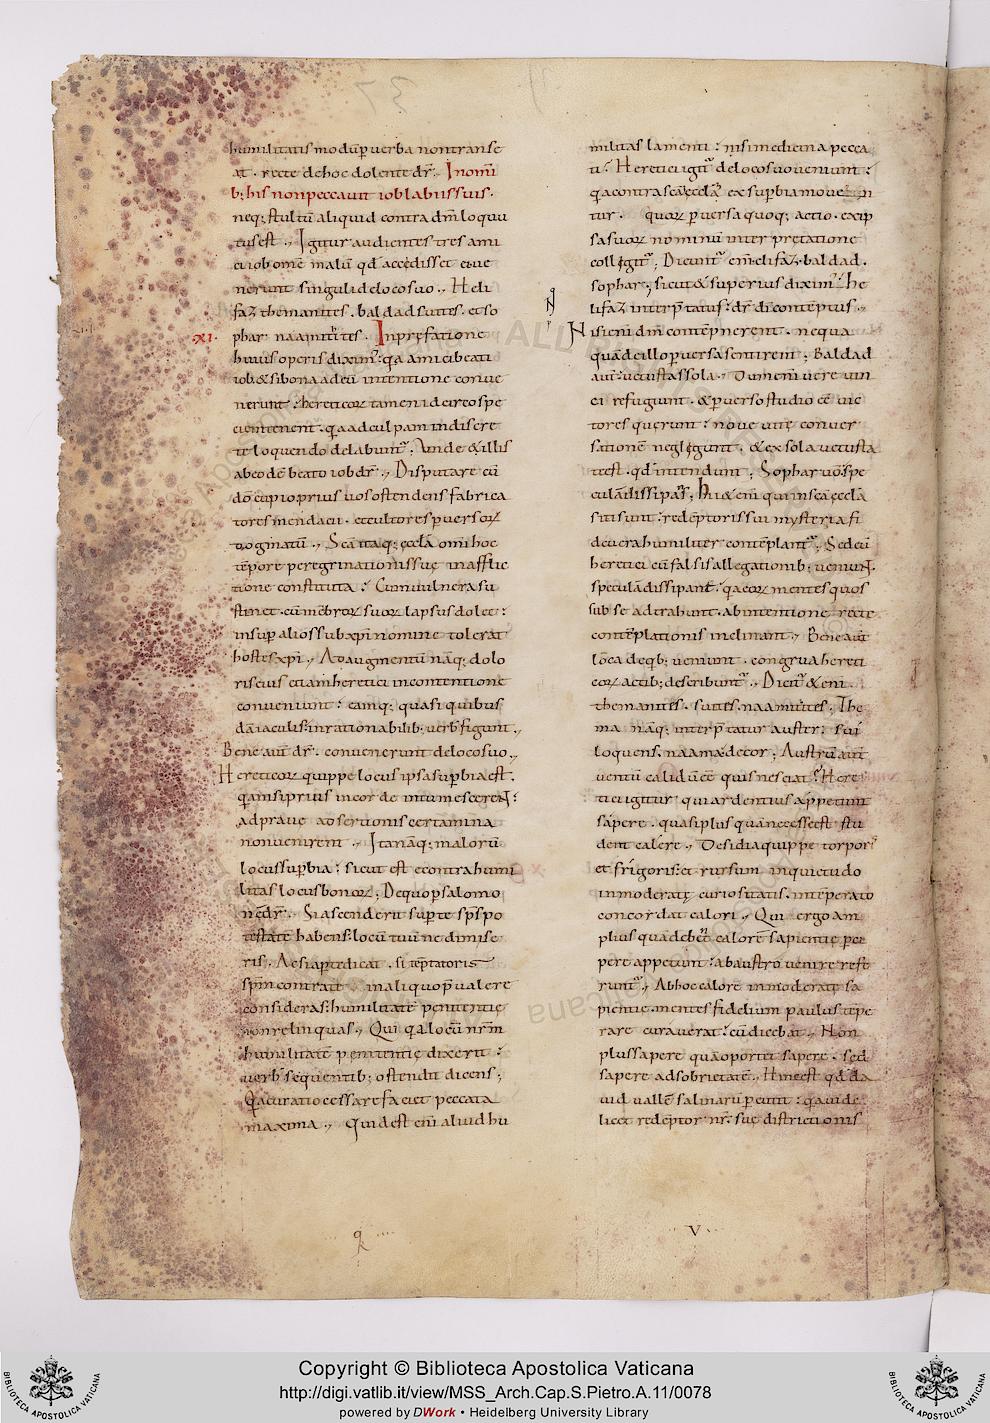 humilitatis modũ p̱ uerba non transe
at. recte de hoc dolente dr̃. In omnĩ
b; his non peccauit iob labiis suis.
neq; stultũ aliquid contra dm̃ loquu
tus est., Igitur audientes tres ami
ci iob omnẽ malũ qđ accedisset ei. ue
nerunt singuli de loco suo., Heli
faz themanites. baldad suites. et so
phar naamitites. In prefatione
XI.
huius operis diximꝰ. qa amici beati
iob & si bona ad eũ intentione conue
nerunt: hereticoꝝ tamen idcirco spe
ciem tenent. qa ad culpam indiscre
te loquendo delabunt̃. Unde & illis
ab eodẽ beato iob dr̃., Disputare cũ
dõ cupio prius uos ostendens fabrica
tores mendacii. et cultores puersoꝝ
dogmatũ., Sc̃a itaq; eccla omi hoc
tẽpore peregrinationis suę in afflic
tione constituta: Cum uulnera su
stinet. cũ mẽbroꝝ suoꝝ lapsus dolet:
insup alios sub xp̃i nomine tolerat
hostes xp̃i., Ad augmentũ nãq; dolo
ris eius etiam heretici in contentione
conueniunt: eamq; quasi quibus
dã iaculis: inrationabilib; uerb̃ figunt.,
Bene aut̃ dr̃. conuenerunt de loco suo.,
Hereticoꝝ quippe locus ipsa supbia est.
qa nisi prius in corde intumescerent:
ad praue adsertionis certamina
non uenirent., Ita nãq; maloꝝ
locus supbia: sicut est econtra humi
litas locus bonoꝝ; De quo p salomo
nẽ dr̃., Si ascenderit sup te sp̃s po
testatẽ habens: locũ tuũ ne dimise
ris. Ac si apte dicat. si tẽptatoris
sp̃m contra te in aliquo p̱ualere
consideras: humilitatẽ penitentię
non relinquas., Quia qa locũ nr̃m
humilitatẽ penitentię dixerit:
uerb̃ sequentib; ostendit dicens;
Qa curatio cessare faciet peccata
maxima., Quid est eni aliud hu
militas lamenti: nisi medicina pecca
ti: Heretici igit̃ de loco suo ueniunt:
qa contra sc̃ã ecclã ex supbia mouen
tur. quoꝝ p uersa quoq; actio. ex ip
sa suoꝝ nominũ interpretatione
colligit̃; Dicunt̃ eni elifaz. baldad.
sophar; sicut & superius diximꝰ. he
lifaz interp̃tatus: dr̃ di contẽptus.,
Nisi eni dm̃ contẽpnerent. nequa
quã de illo puersa sentirent; Baldad
aut̃: uetustas sola., Dum eni uere uin
ci refugiunt. & peruerso studio eẽ uic
tores querunt: nouę uitę conuer
sationẽ neglegunt. & ex sola uetusta
te est. qđ intendunt; Sophar u͂o spe
culã dissipas; hii & eni qui in sc̃a eccla
siti sunt: redẽptoris sui mysteria fi
de uera humiliter contẽplant̃; Sed cũ
heretici cũ falsis allegationib; ueniunt.
speculã dissipant. qa eoꝝ mentes quos
sub se adtrahunt. ab intentione recte
contẽplationis inclinant., Bene aut̃
loca de qb; ueniunt. congrua hereti
coꝝ actib; describunt̃., Dicit̃ & eni.
themanites. suites. naamitites; The
ma nãq; interp̃tatur auster: sui
loquens. naama: decor; Austrũ aut̃
uentũ calidũ eẽ quis nesciat: Here
tici igitur qui ardentius appetunt
sapere. quasi plus quã necesse est stu
dent calere., Desidia quippe torpori
et frigori: et rursum inquietudo
inmoderatę curiositatis. intẽperato
concordat calori., Qui ergo am
plius quã debent calorẽ sapientię per
pere appetunt: ab austro uenire refe
runt̃., Ab hoc calore inmoderatę sa
pientię. mentes fidelium paulus tẽpe
rare curauerat: cũ dicebat., Non
plus sapere quã oportet sapere. sed
sapere ad sobrietatẽ., Hinc est qđ da
uid uallẽ salinarũ percutit: qa uide
licet redẽptor nr̃. suę districtionis
V
Copyright © Biblioteca Apostolica Vaticana
http://digi.vatlib.it/view/MSS_Arch.Cap.S.Pietro.A.11/0078
powered by DWork • Heidelberg University Library
BIBLIOTECA APOSTOLICA VATICANA
BIBLIOTECA APOSTOLICA VATICANA